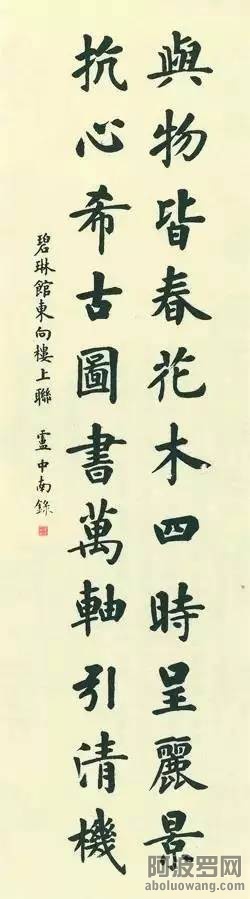 與物皆春花木四時呈麗景
抗心希古圖書萬軸引清機
碧琳館東向樓上聯 盧中南錄
阿波罗网
aboluowang.com